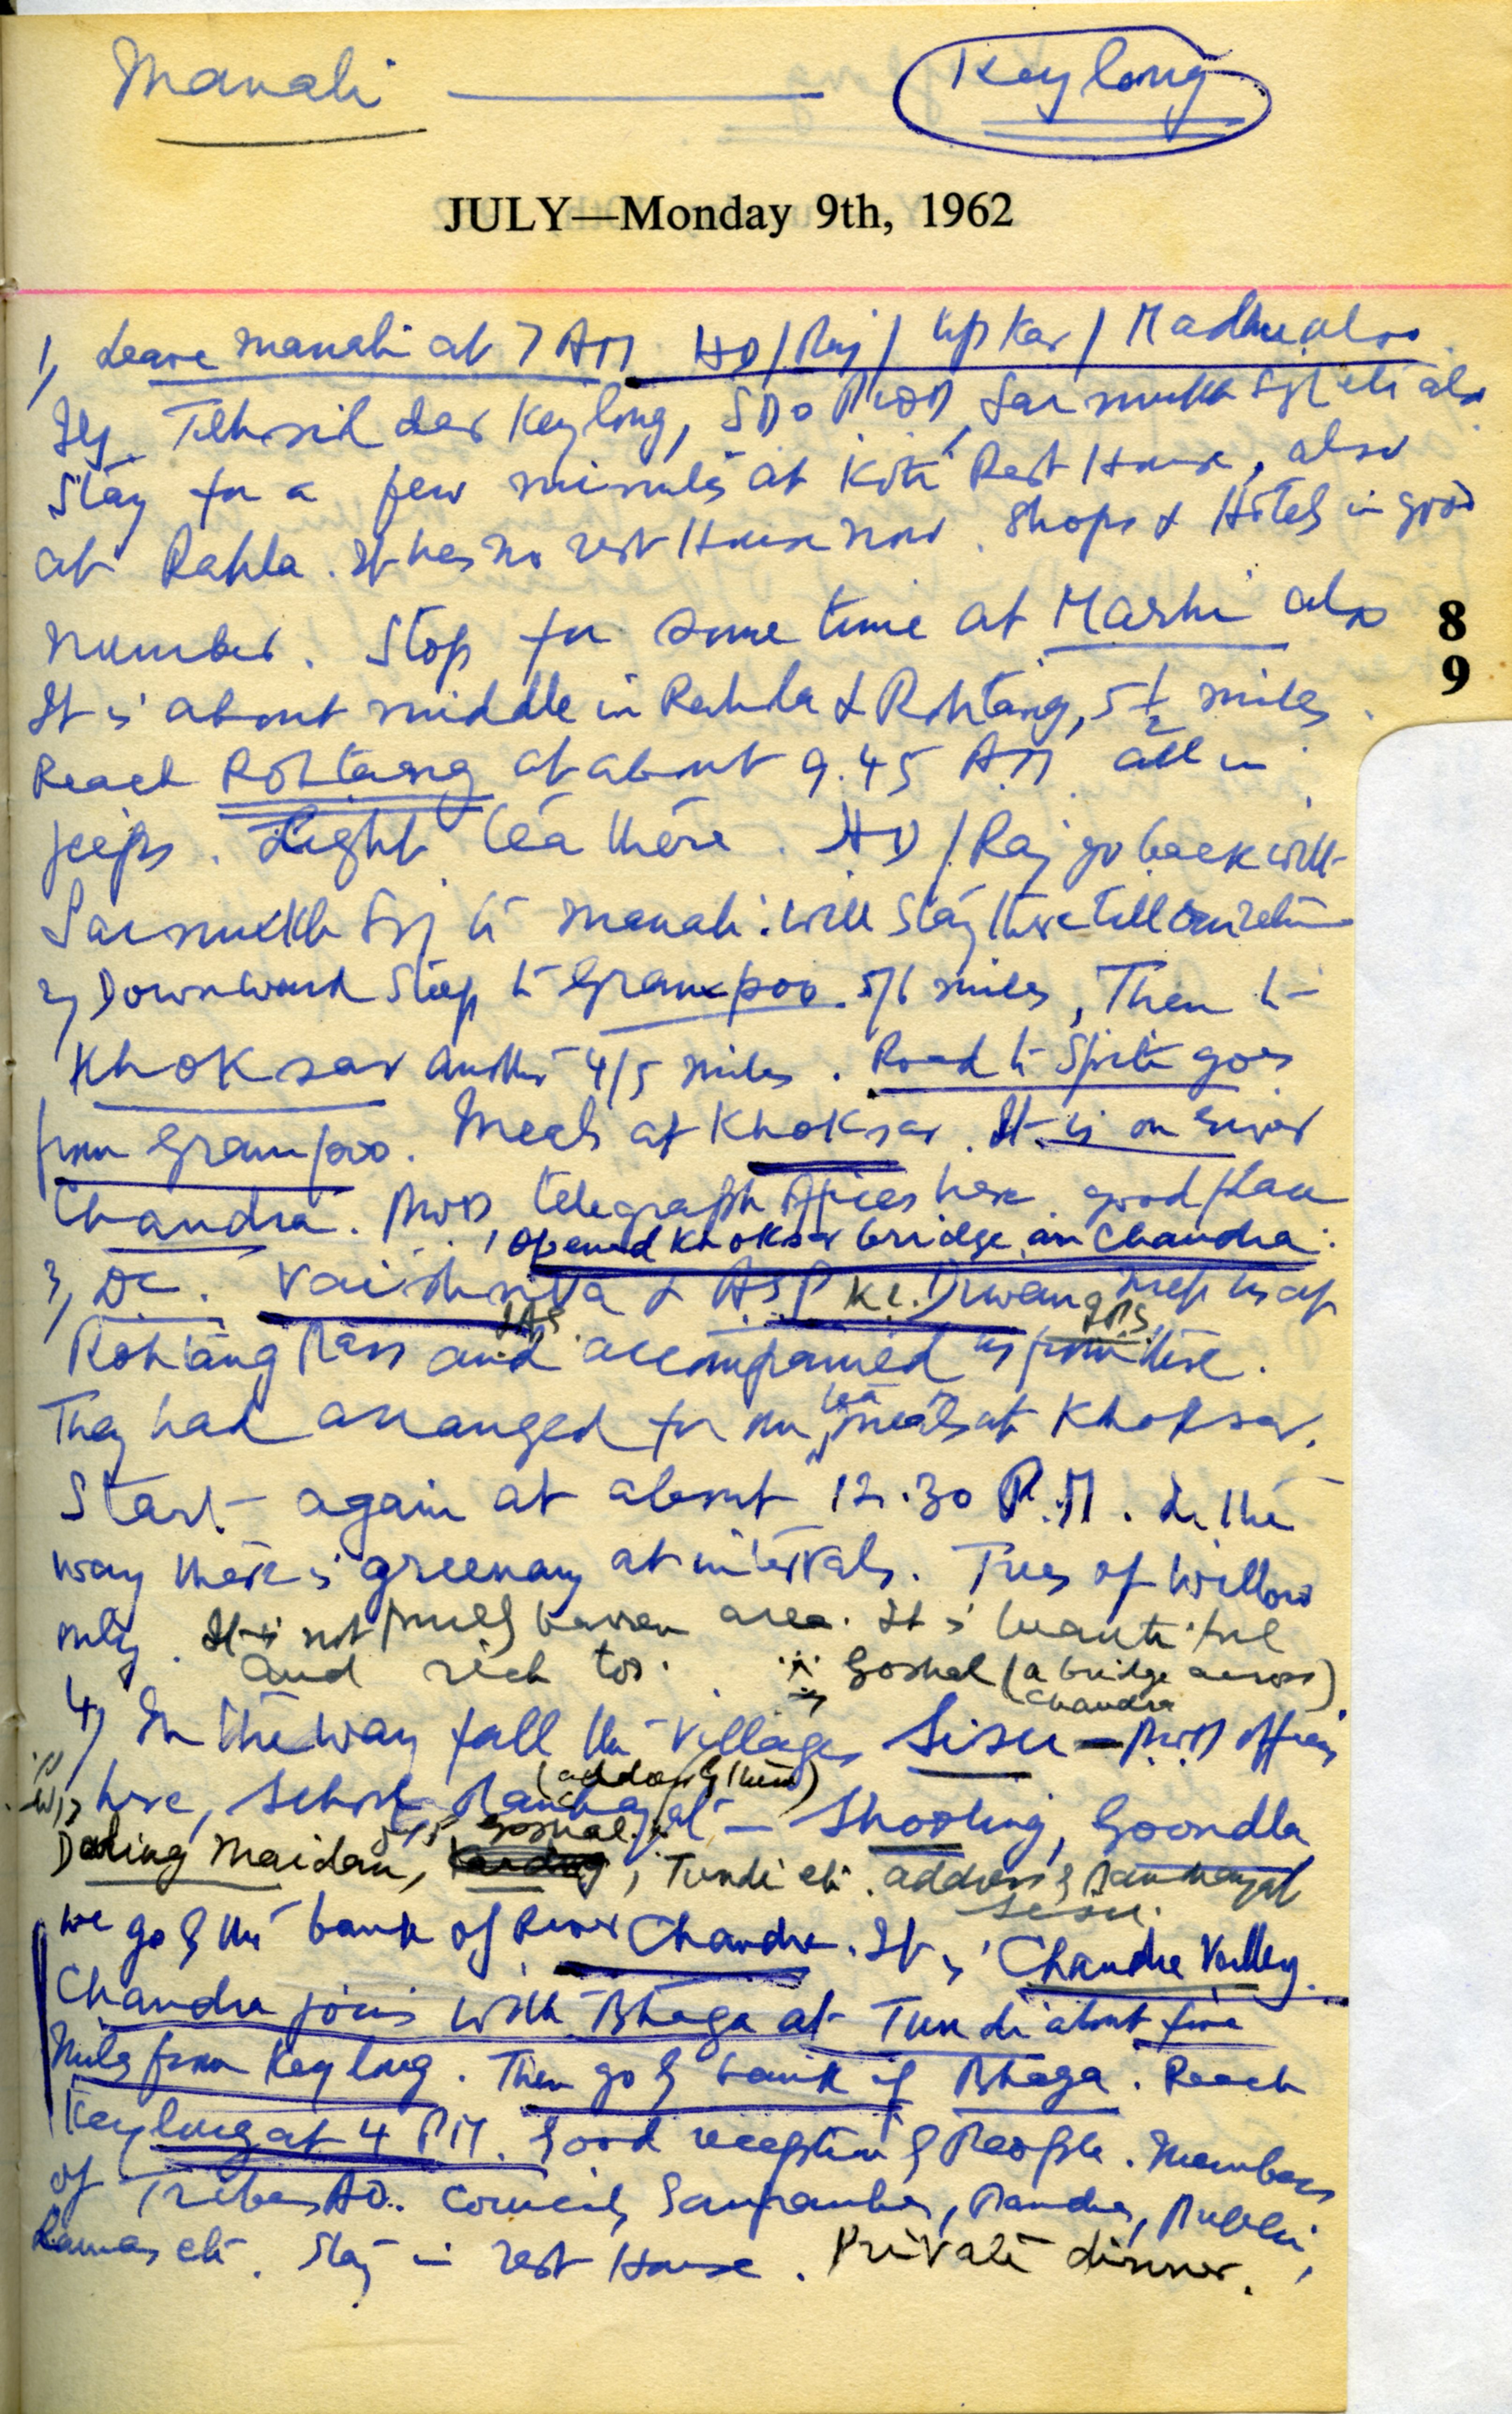 Manali — Keylong
JULY—Monday 9th, 1962
1) Leave Manali at 7 AM. HD/Raj/Upkar/Madhu also
Tehsildar Keylong, SDO PWD, Gurmukh Sgh etc also
Stay for a few minutes at Kothi Rest House, also
at Rahla. It has no rest House now. Shops & Hotels in good
number. Stop for some time at Marhi also
It is about middle in Rahla & Rohtang, 5 1/2 miles.
Reach Rohtang at about 9.45 AM all in
jeeps. Light tea there. HD/Raj go back with
Gurmukh Sgh to Manali: will stay there till our return
2) Downward Steep to Grampoo. 5/6 miles, Then to
Khoksar another 4/5 miles. Road to Spiti goes
from Grampoo. Meals at Khoksar. It is on river
Chandra. PWD, telegraph offices here good place
, Opened Khoksar bridge on Chandra.
3) DC. Vaishnva & ASP K.C. Diwan meet us at
IAS. IPS.
Rohtang Pass and accompanied us from there.
They had arranged for our tea, meals at Khoksar.
Start again at about 12.30 P.M. In the
way there is greenary at intervals. Trees of willow
only. It is not fully barren area. It is beautiful
and rich too. Goshal (a bridge across
Chandra)
4) In the way fall the villages Sisu — PWD offices
here, School Panchayat — Shooling, Goondla
(address by them)
Daling Maidan, Goshal, Tundi etc. address by Panchayat
Sisu.
we go by the bank of River Chandra. It is Chandra Valley.
Chandra joins with Bhaga at Tundi about five
Miles from Keylong. Then go by bank of Bhaga. Reach
Keylong at 4 PM. Good reception by People. Members
of Tribes AD. Council, Sarpanches, Panches, Public,
Lamas etc. Stay in rest House. Private dinner.
8
9